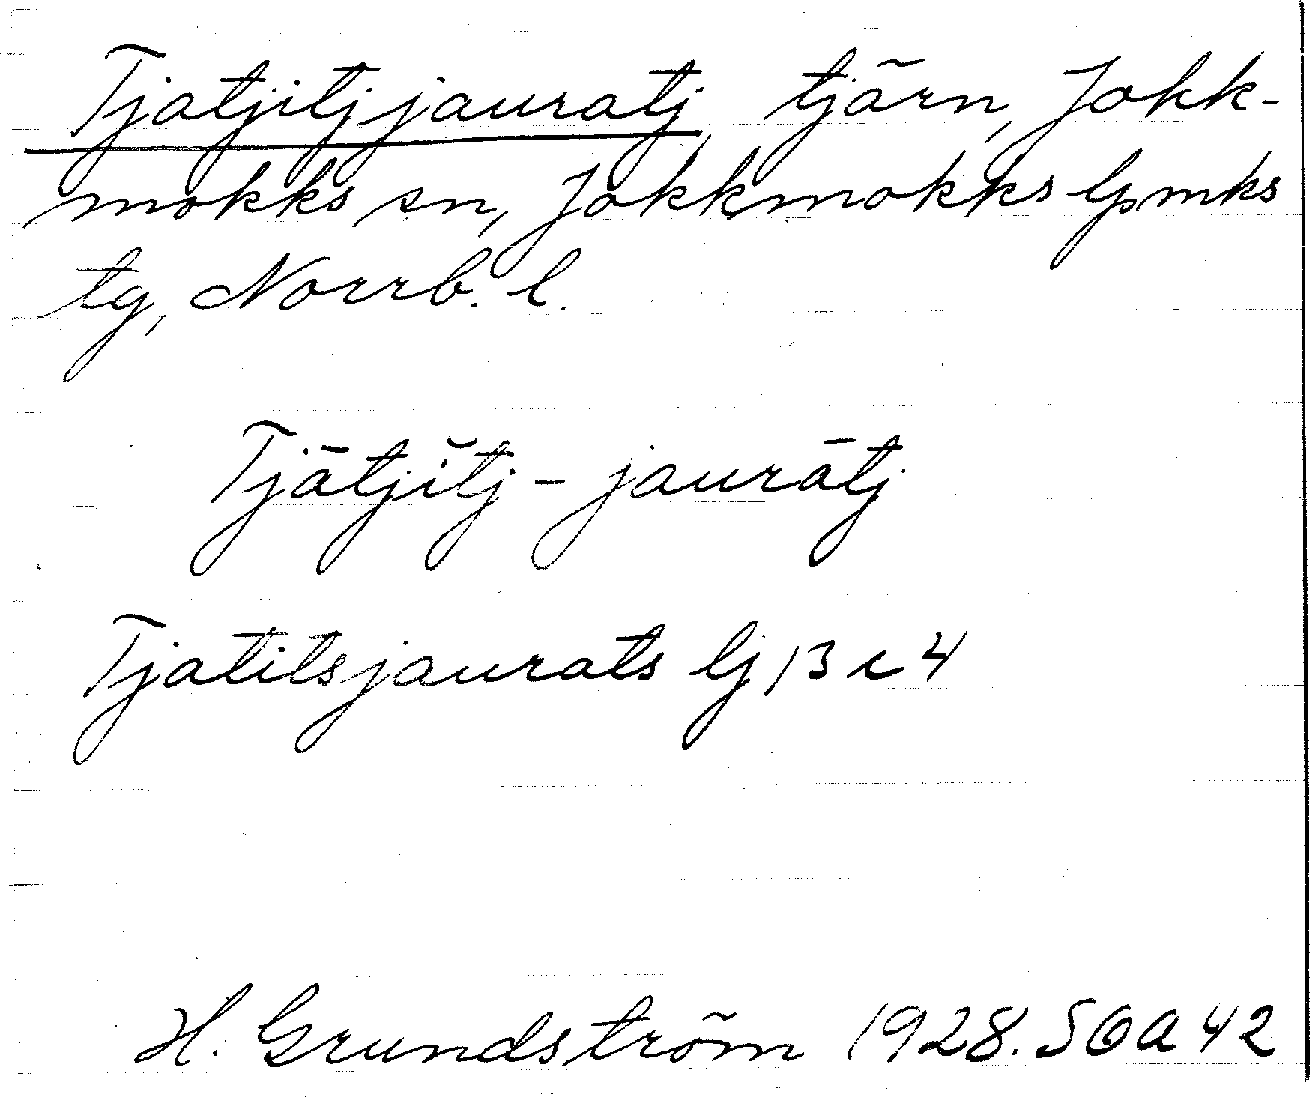 Tjatjitjjauratj, tjärn, Jokk-
mokks sn, Jokkmokks lpmks
tg, Norrb. l.
Tjātjĭtj - jaurātj
Tjatitsjaurats lj 13 c 4
H. Grundström 1928. SOA 42